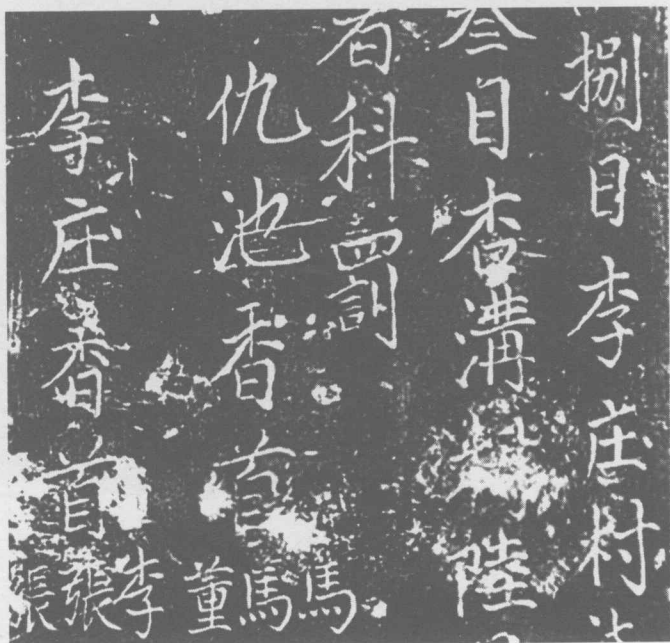 捌日李庄村
叁日杏溝村陸
者科罰
仇池香首
馬馬董
李庄香首
李張張